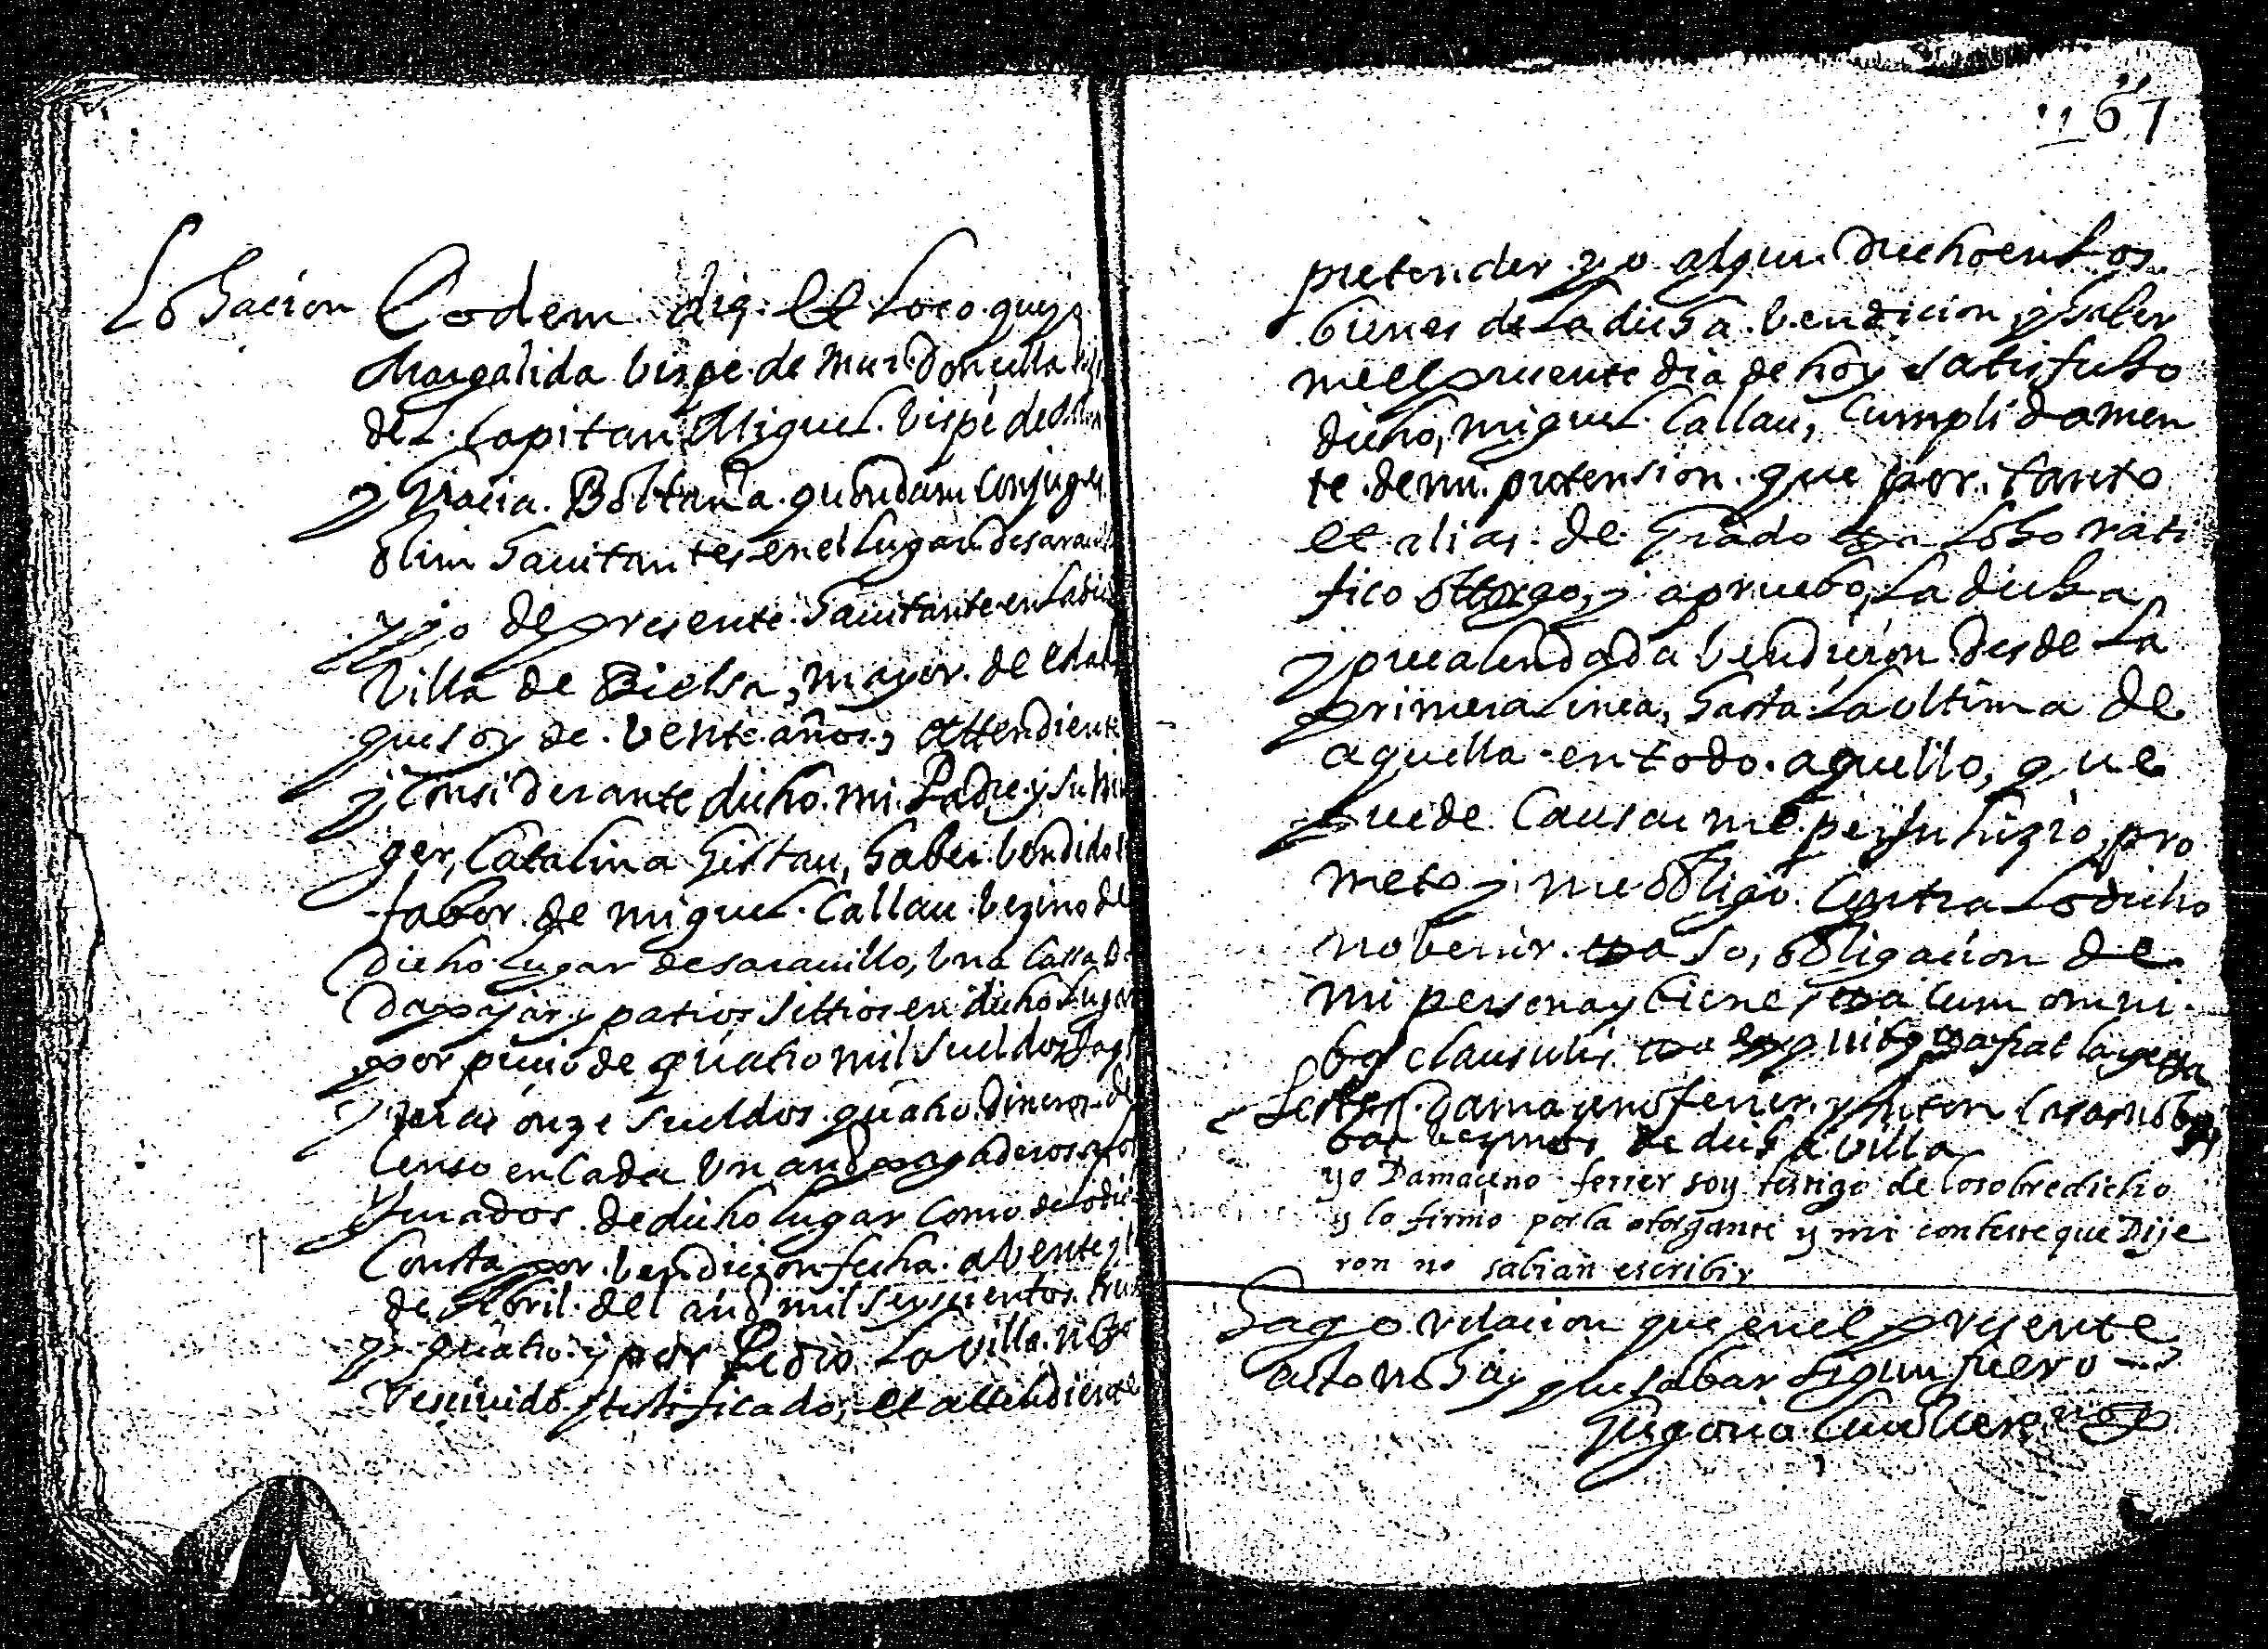 167
Lohacion Eodem die et Loco que yo
Margalida bispe de Mur Doncella
del Capitan Miguel Vispe de
y Gracia Boltaña quondam Conjuges
olim havitantes en el lugar de saravillo
y yo de presente havitante en la dicha
Villa de Bielsa, mayor de edad
que soy de vente años, attendiente
y Considerante dicho mi Padre y su Mu
ger, Catalina Gistau, haber bendido
fabor de miguel Callau bezino del
dicho lugar de saravillo, una Cassa
da pajar y patios sittios en dicho lugar
por precio de quatro mil sueldos
y mas onze sueldos quatro dineros de
Censo en Cada Un año pagaderos a los
Jurados de dicho lugar Como de lo dicho
Consta por bendicion fecha a bente y
de Abril del año mil seyscientos
y quatro y por Pedro Lavilla
rescivido y testificado, et attendiente
pretender yo algun drecho en Los
bienes de La dicha bendicion y haber
me el presente dia de hoy satisfecho
dicho, miguel Callau, Cumplidamen
te de mi pretension que por tanto
et alias de Grado Loho rati
fico ottorgo, y apruebo, La dicha
y precalendada bendicion desde La
primera linea, hasta La ultima de
aquella en todo aquello, que
puede Causarme perjuhizio, pro
meto y me obligo Contra Lo dicho
no benir so, obligacion de
mi persona y bienes Cum omni
bus clausulis fiat large
Testes Damaceno ferrer y
bezinos de dicha villa
yo Damaceno ferrer soy testigo de lo sobredicho
y lo firmo por la otorgante y mi conteste que Dije
ron no sabian escribir
hago relacion que en el presente
acto no hay que salbar segun fuero